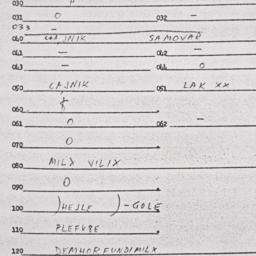 030
031 0 032 -
033 -
040 ČAJNIK SAMOVAR
041 - 042 -
043 - 044 0
050 ČAJNIK 051 LAK XX
060
061 0 062 -
070 0
080 MILX VILIX
090 0
100 )HESLE )-GOLE
110 PLEFKBE
120